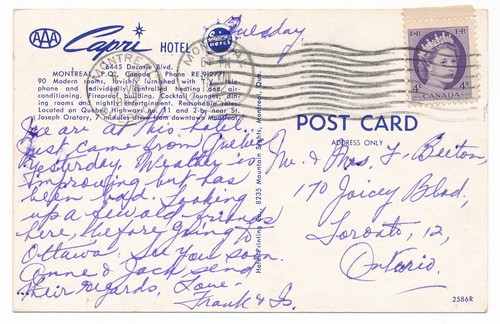 Tuesday
AAA Capri HOTEL
6445 Decarie Blvd.
MONTREAL, P.Q. Canada Phone RE.9-2771
90 Modern rooms, lavishly furnished with
phone and individually controlled heating and air-
conditioning. Fireproof building. Cocktail Lounges, din-
ing rooms and nightly entertainment. Reasonable rates.
Located on Quebec Highways no. 11 and 2-by near St.
Joseph Oratory, 7 minutes drive from downtown Montreal.
MONTREAL
MONTREAL
PM
4¢ CANADA 4¢
POST CARD
ADDRESS ONLY
We are at this hotel.
Just came from Quebec
yesterday. Weather is
improving but has
been bad. Looking
up a few old friends
here, before going to
Ottawa. See you soon.
Anne & Jack send
their regards, Love-
Frank & Is.
Hotel Printing 8235 Mountain Sights, Montreal, Que.
Mr. & Mrs. F. Beeton,
170 Joicey Blvd,
Toronto, 12,
Ontario.
2586R